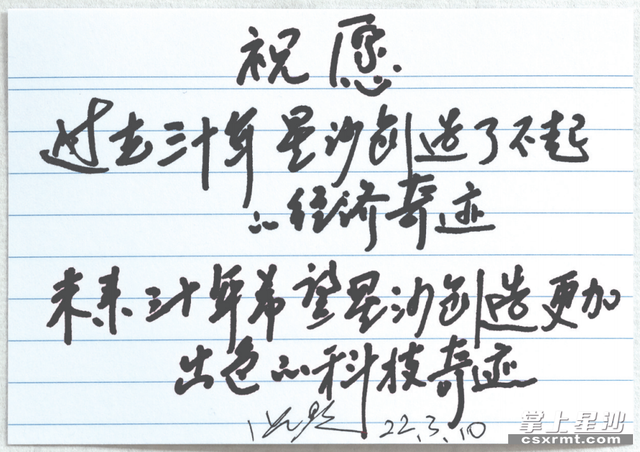 祝愿
过去三十年星沙创造了不起
的经济奇迹
未来三十年希望星沙创造更加
出色的科技奇迹
22.3.10
掌上星沙
csxrmt.com